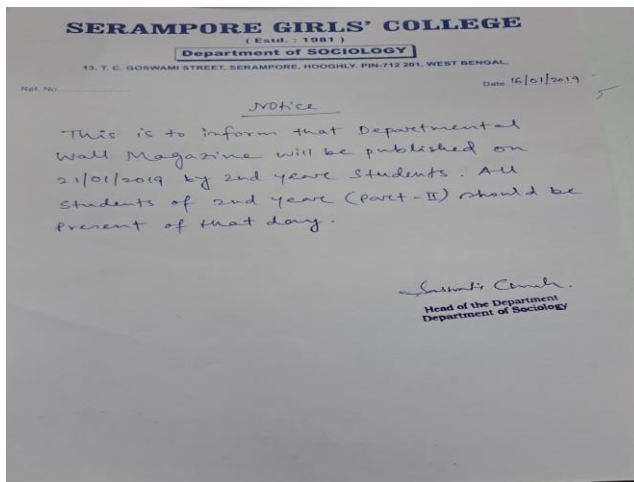 SERAMPORE GIRLS' COLLEGE
( Estd. : 1981 )
Department of SOCIOLOGY
13, T. C. GOSWAMI STREET, SERAMPORE, HOOGHLY. PIN-712 201, WEST BENGAL.
Ref. No.
Date 16/01/2019
Notice
This is to inform that Departmental
Wall Magazine will be published on
21/01/2019 by 2nd year students. All
Students of 2nd year (Part-II) should be
Present of that day.
Head of the Department
Department of Sociology